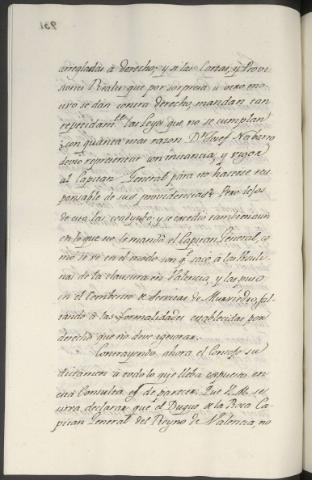 arregladas à derecho; y si las Cartas, y Provi-
siones Reales que por sorpresa ù otro mo-
tivo se dan contra derecho, mandan tan
repetidam.te las Leyes que no se cumplan
con quanta mas razon D.n Josef Navarro
devio representar con instancia, y vigor
al Capitan General para no hacerse res-
ponsable de sus providencias? Pero lejos
de eso las coadyubò, y excediò tambien aun
en lo que no le mandò el Capitan General, co-
mo se vè en el modo con q.e sacò à las
de la clausura en Valencia, y las puso
en el Combento de Servitas de Murviedro, fal-
tando à las formalidades establecidas por
derecho que no deve ignorar.
Contrayendo, ahora el Consejo su
dictamen à todo lo que lleba expuesto en
esta Consulta es de parecer: Que V.M. se
sirva declarar que el Duque de la Roca Ca-
pitan General del Reyno de Valencia, no